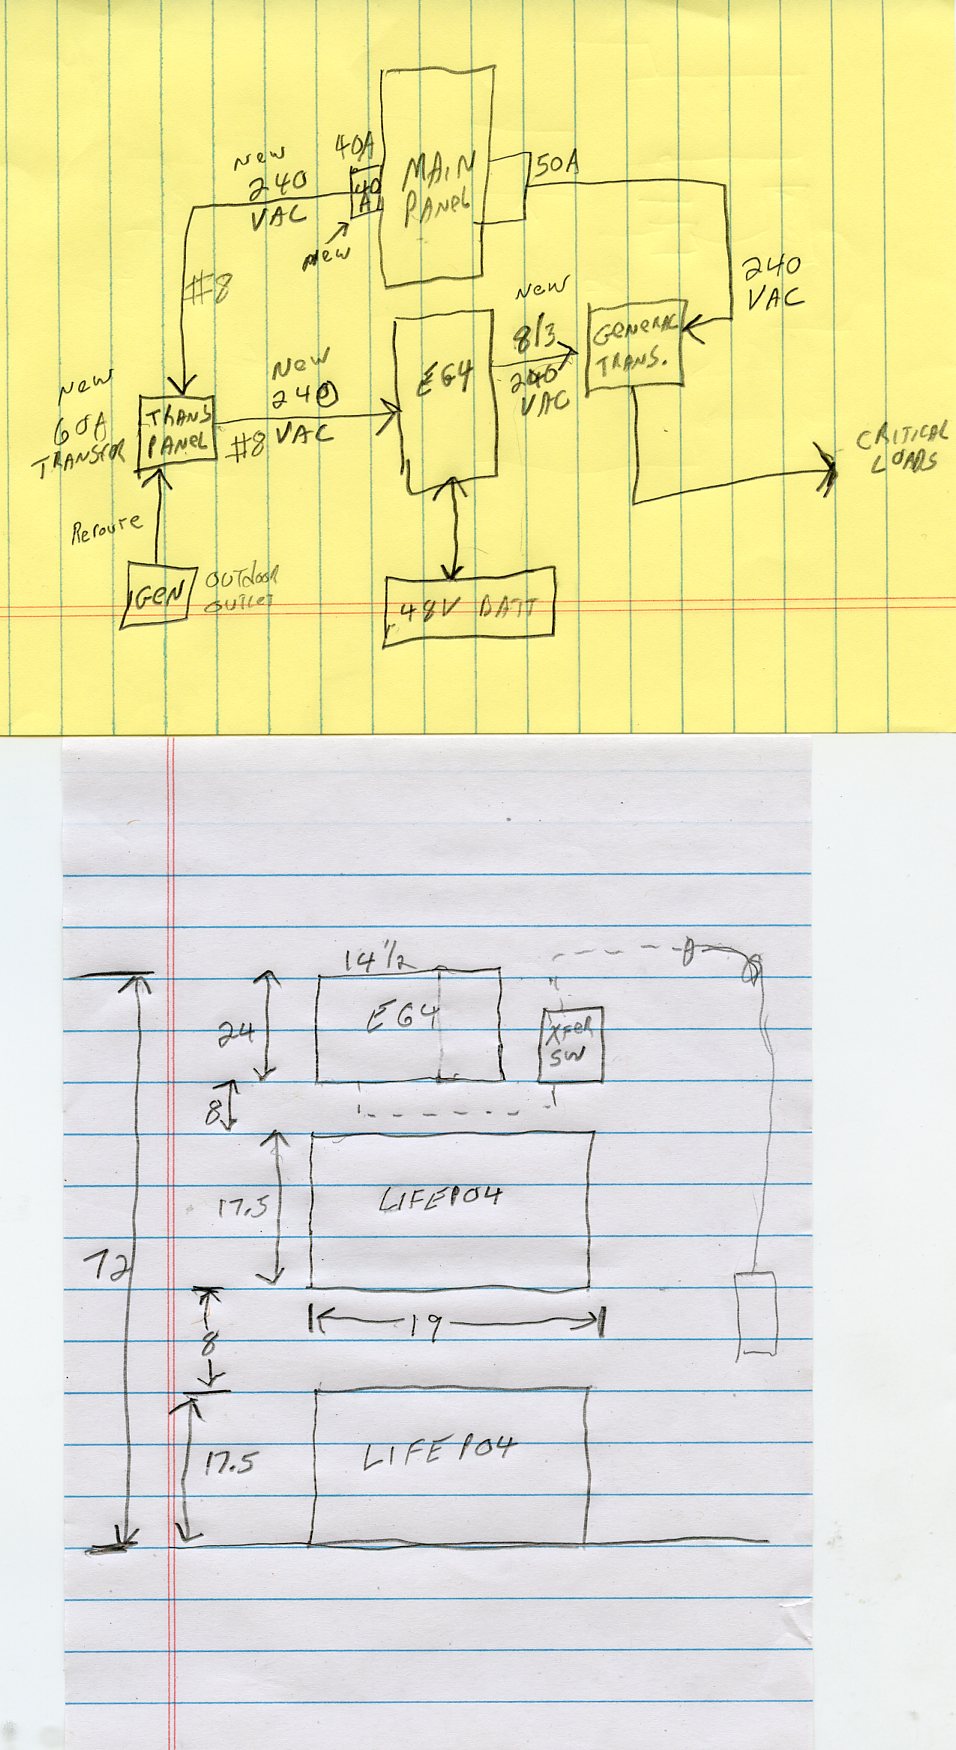 40A
MAIN
PANEL
40
A
50A
New
240
VAC
New
#8
240
VAC
New
8/3
240
VAC
GENERAC
TRANS.
EG4
New
60A
TRANSFER
TRANS
PANEL
New
240
VAC
#8
CRITICAL
LOADS
Reroute
GEN
OUTDOOR
OUTLET
48V BATT
14 1/2
EG4
24
XFER
SW
8
LIFEPO4
17.5
72
19
8
LIFEPO4
17.5